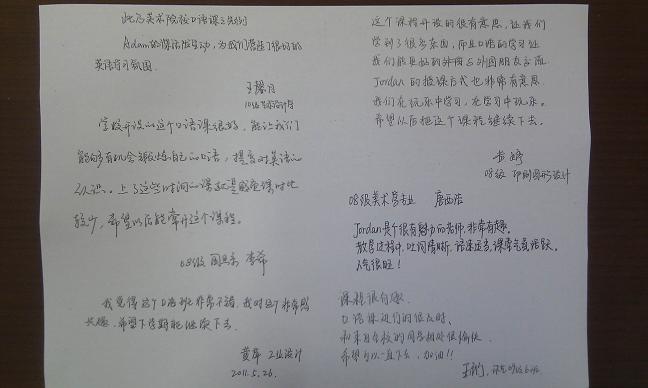 此为美术院校口语课之先例
Adam的课活泼生动,为我们营造了很好的
英语学习氛围.
学校开设的这个口语课很好,能让我们
能够有机会锻炼自己的口语,提高对英语的
认识。上了这些时间的课就是感觉课时比
较少,希望以后能常开这个课程。
08级 国画系 李希
我觉得这个口语班非常不错,我对这个非常感
兴趣,希望下学期能继续下去.
黄萍 工业设计
2011.5.26.
这个课程开放的很有意思,让我们
学到了很多东西,而且口语的学习让
我们能更好的外国与外国朋友交流.
Jordan的授课方式也非常有意思
我们在玩乐中学习,在学习中玩乐。
希望以后把这个课程继续下去。
08级 印刷图形设计
08级美术学专业 唐西浩
Jordan是个很有魅力的老师,非常有趣.
教学过程中,吐词清晰,语速适当,课堂气氛活跃.
人气很旺!
课程很有趣.
口语课进行的很及时.
和来自各校的同学相处很愉快.
希望可以一直下去,加油!!